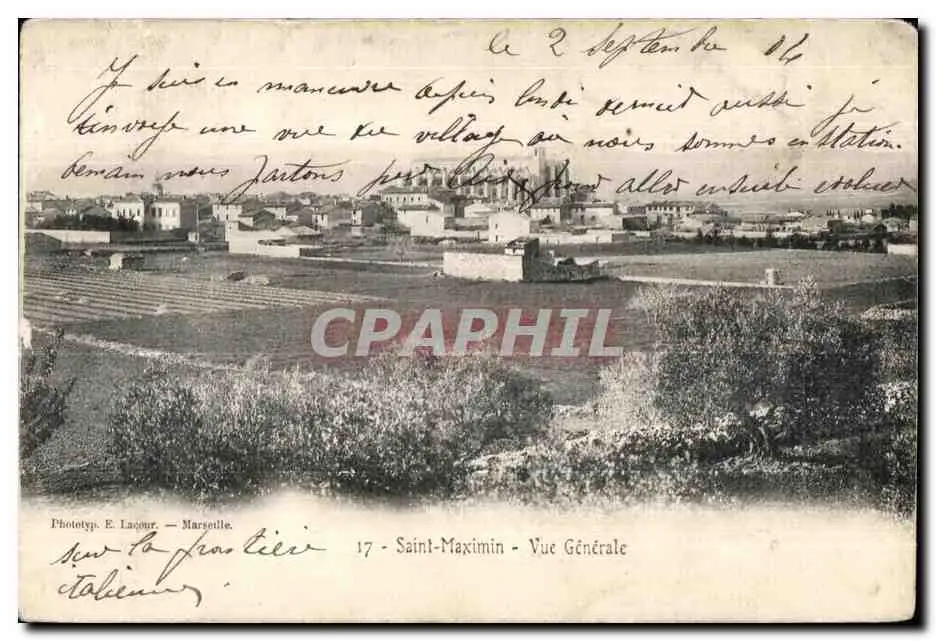 le 2 Septembre 04
Je suis en manœuvre depuis lundi dernier aussi je
t'envoye une vue du village où nous sommes en station.
demain nous partons pour Lucq pour aller ensuite evoluer
CPAPHIL
Phototyp. E. Lacour. — Marseille.
17 - Saint-Maximin - Vue Générale
sur la frontière
italienne